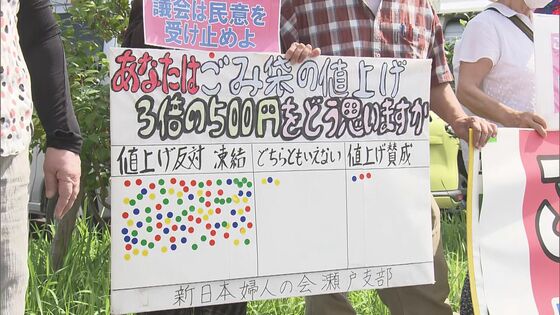 議会は民意を
受け止めよ
あなたはごみ袋の値上げ
3倍の500円をどう思いますか
値上げ反対 凍結 どちらともいえない 値上げ賛成
新日本婦人の会瀬戸支部